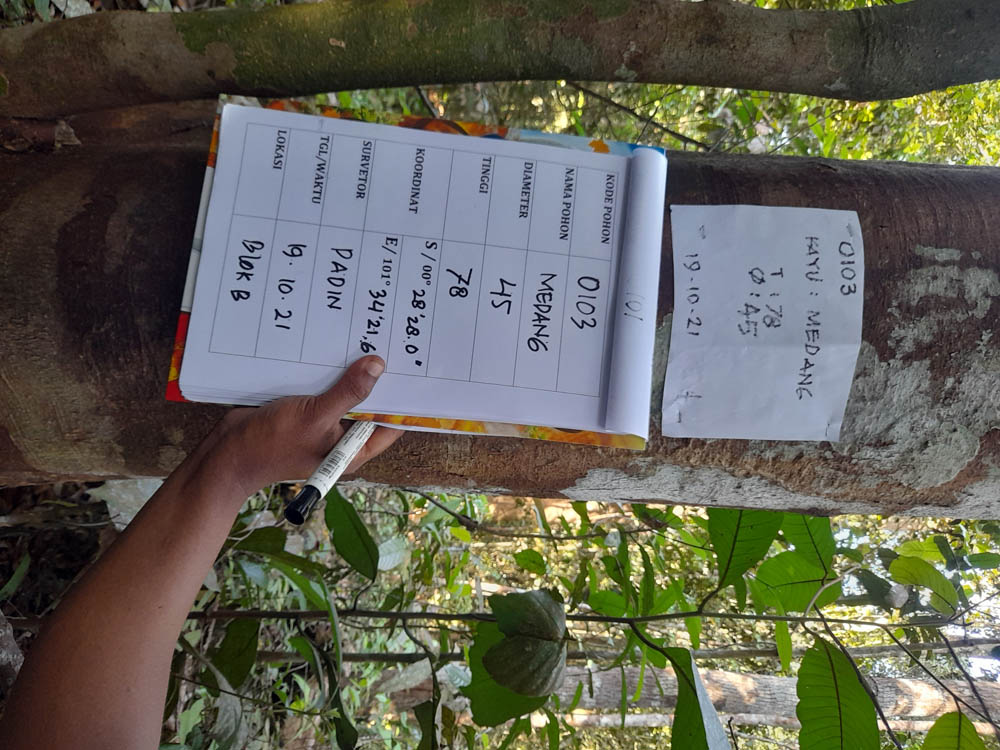 0103
KAYU : MEDANG
T : 78
Ø : 45
19-10-21
101
KODE POHON 0103
NAMA POHON MEDANG
DIAMETER 45
TINGGI 78
KOORDINAT S / 00° 28'28.0"
E/ 101° 34'21,6
SURVETOR DADIN
TGL/WAKTU 19. 10. 21
LOKASI BLOK B